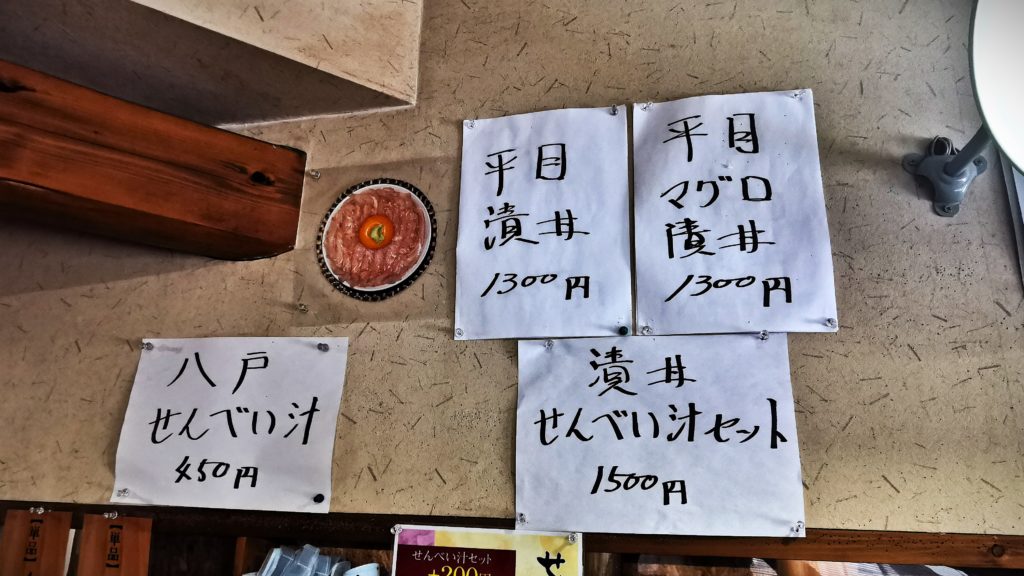 平目
漬丼
1300円
平目
マグロ
漬丼
1300円
八戸
せんべい汁
450円
漬丼
せんべい汁セット
1500円
【単品】
【単品】
せんべい汁セット
+200円
せ